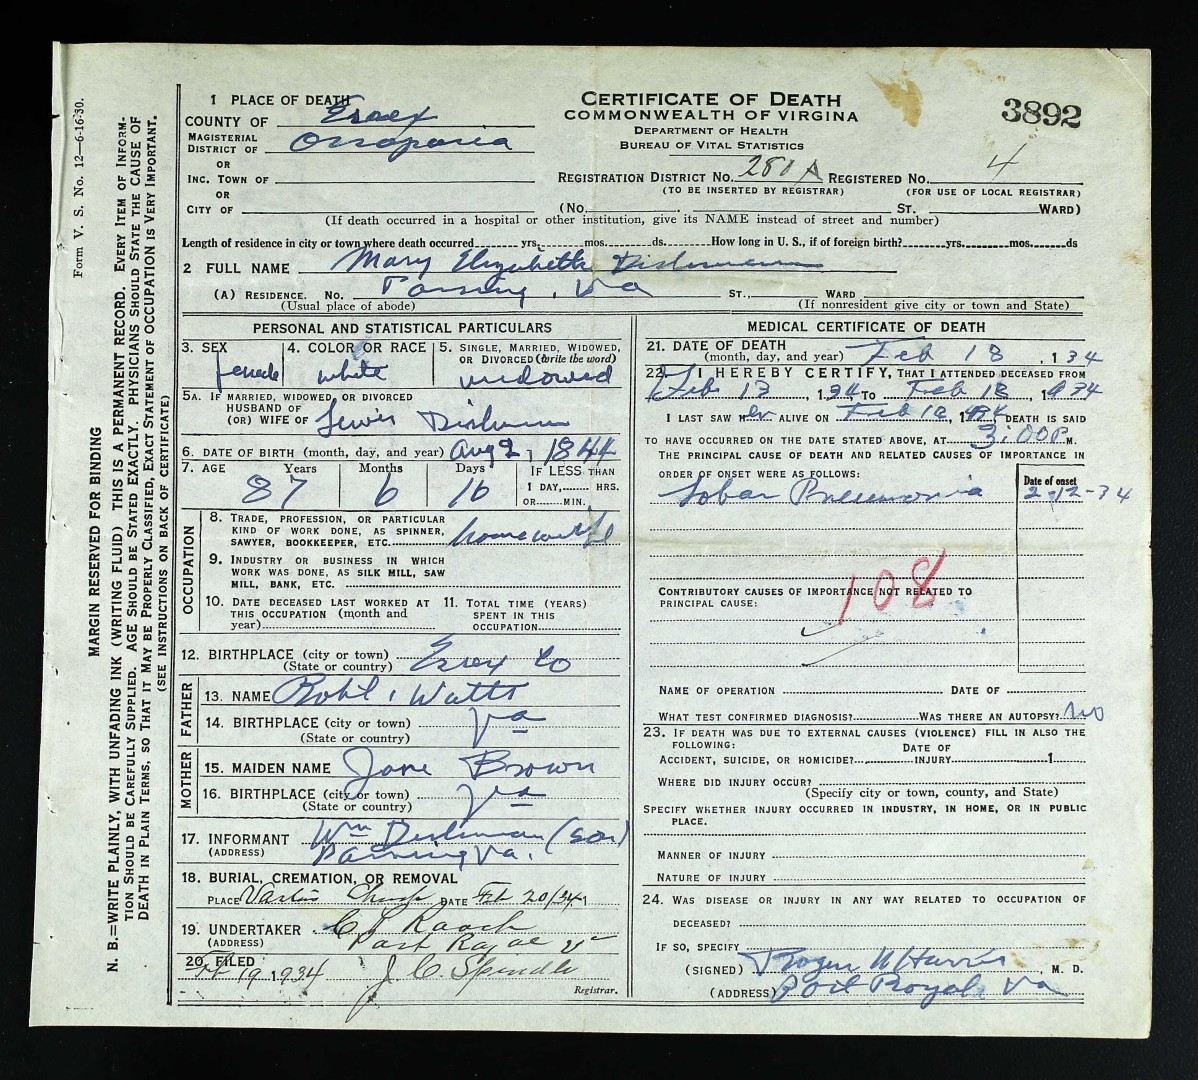 Form V. S. No. 12—6-16-30.
MARGIN RESERVED FOR BINDING
N. B.=WRITE PLAINLY, WITH UNFADING INK (WRITING FLUID) THIS IS A PERMANENT RECORD. EVERY ITEM OF INFORM-
TION SHOULD BE CAREFULLY SUPPLIED. AGE SHOULD BE STATED EXACTLY. PHYSICIANS SHOULD STATE THE CAUSE OF
DEATH IN PLAIN TERMS, SO THAT IT MAY BE PROPERLY CLASSIFIED. EXACT STATEMENT OF OCCUPATION IS VERY IMPORTANT.
(SEE INSTRUCTIONS ON BACK OF CERTIFICATE)
CERTIFICATE OF DEATH
COMMONWEALTH OF VIRGINA
DEPARTMENT OF HEALTH
BUREAU OF VITAL STATISTICS
3892
1 PLACE OF DEATH
COUNTY OF Essex
MAGISTERIAL
DISTRICT OF
OR
INC. TOWN OF
OR
REGISTRATION DISTRICT NO. 280A REGISTERED NO. 4
(TO BE INSERTED BY REGISTRAR) (FOR USE OF LOCAL REGISTRAR)
CITY OF (No. ST. WARD)
(If death occurred in a hospital or other institution, give its NAME instead of street and number)
Length of residence in city or town where death occurred yrs. mos. ds. How long in U. S., if of foreign birth? yrs. mos. ds
2 FULL NAME Mary Elizabeth Dishman
(A) RESIDENCE. No. Va ST., WARD
(Usual place of abode) (If nonresident give city or town and State)
PERSONAL AND STATISTICAL PARTICULARS
3. SEX female
4. COLOR OR RACE white
5. SINGLE, MARRIED, WIDOWED,
OR DIVORCED (write the word)
widowed
5A. IF MARRIED, WIDOWED OR DIVORCED
HUSBAND OF
(OR) WIFE OF Lewis Dishman
6. DATE OF BIRTH (month, day, and year) Aug 2, 1844
7. AGE Years Months Days IF LESS THAN
87 6 16 1 DAY, HRS.
OR MIN.
OCCUPATION
8. TRADE, PROFESSION, OR PARTICULAR
KIND OF WORK DONE, AS SPINNER,
SAWYER, BOOKKEEPER, ETC. housewife
9. INDUSTRY OR BUSINESS IN WHICH
WORK WAS DONE, AS SILK MILL, SAW
MILL, BANK, ETC.
10. DATE DECEASED LAST WORKED AT
THIS OCCUPATION (month and
year)
11. TOTAL TIME (YEARS)
SPENT IN THIS
OCCUPATION
12. BIRTHPLACE (city or town)
(State or country) Essex Co
FATHER
13. NAME Robt. Watts
14. BIRTHPLACE (city or town) Va
(State or country)
MOTHER
15. MAIDEN NAME Jane Brown
16. BIRTHPLACE (city or town) Va
(State or country)
17. INFORMANT Wm Dishman (son)
(ADDRESS) Va.
18. BURIAL, CREMATION, OR REMOVAL
PLACE Church DATE Feb 20/34 1
19. UNDERTAKER
(ADDRESS) Port Royal Va
20. FILED 19 1934 J C Spindle
Registrar.
MEDICAL CERTIFICATE OF DEATH
21. DATE OF DEATH
(month, day, and year) Feb 18, 134
22. I HEREBY CERTIFY, THAT I ATTENDED DECEASED FROM
Feb 13, 134, TO Feb 18, 1934
I LAST SAW her ALIVE ON Feb 18, 1934, DEATH IS SAID
TO HAVE OCCURRED ON THE DATE STATED ABOVE, AT 3:00 P M.
THE PRINCIPAL CAUSE OF DEATH AND RELATED CAUSES OF IMPORTANCE IN
ORDER OF ONSET WERE AS FOLLOWS: Date of onset
Lobar Pneumonia 2-12-34
108
CONTRIBUTORY CAUSES OF IMPORTANCE NOT RELATED TO
PRINCIPAL CAUSE:
NAME OF OPERATION DATE OF
WHAT TEST CONFIRMED DIAGNOSIS? WAS THERE AN AUTOPSY? No
23. IF DEATH WAS DUE TO EXTERNAL CAUSES (VIOLENCE) FILL IN ALSO THE
FOLLOWING: DATE OF
ACCIDENT, SUICIDE, OR HOMICIDE? INJURY 1
WHERE DID INJURY OCCUR?
(Specify city or town, county, and State)
SPECIFY WHETHER INJURY OCCURRED IN INDUSTRY, IN HOME, OR IN PUBLIC
PLACE.
MANNER OF INJURY
NATURE OF INJURY
24. WAS DISEASE OR INJURY IN ANY WAY RELATED TO OCCUPATION OF
DECEASED?
IF SO, SPECIFY
(SIGNED) Roger W Harris, M. D.
(ADDRESS) Port Royal Va